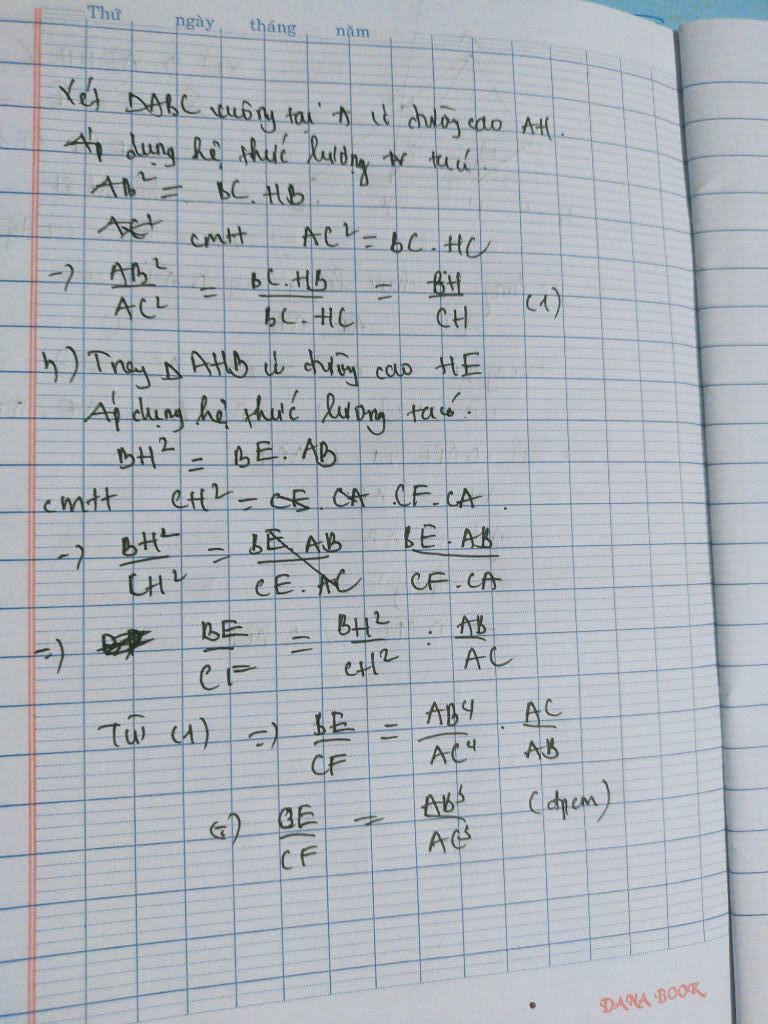 Thứ ngày tháng năm
Xét ΔABC vuông tại A có đường cao AH.
Áp dụng hệ thức lượng ta có.
AB² = BC.HB
cmtt AC² = BC.HC
=> AB²/AC² = BC.HB/BC.HC = BH/CH (1)
ΔAHB có đường cao HE
Áp dụng hệ thức lượng ta có.
BH² = BE.AB
cmtt CH² = CF.CA.
=> BH²/CH² = BE.AB/CF.CA
=> BE/CF = BH²/CH² : AB/AC
Từ (1) => BE/CF = AB⁴/AC⁴ . AC/AB
BE/CF = AB³/AC³ (đpcm)
DANA BOOK